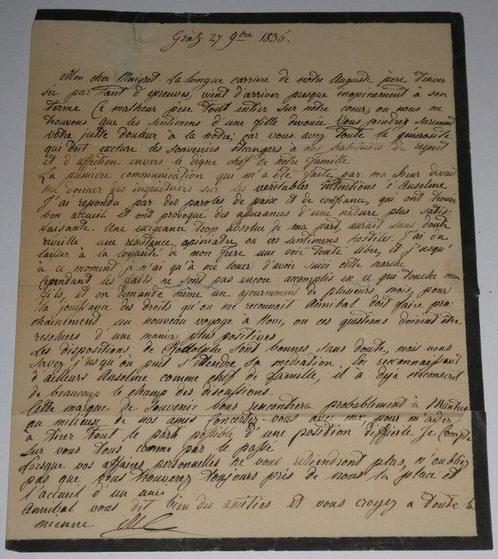 Gratz 27 9bre 1836.
Mon cher Maigret. La longue carrière de notre auguste père traver
sée par tant d'épreuves, vient d'arriver presque inopinément à son
terme Ce malheur pèse tout entier sur notre cœur, ou nous ne
trouvons que les sentimens d'une fille dévouée Vous joindrez surement
votre juste douleur à la notre; car vous avez toute la générosité
qui doit exclure les souvenirs étrangers à nos habitudes de respect
et d'affection envers le digne chef de notre famille
La première communication qui m'a été faite par ma Sœur devait
me donner des inquiétudes sur les véritables intentions d'Anselme
J'ai répondu par des paroles de paix et de confiance, qui ont trouvé
bon accueil et ont provoqué des assurances d'une nature plus satis-
faisante. Une exigeance trop absolue de ma part, aurait sans doute
réveillé une résistance opiniatre, ou des sentimens hostiles; j'ai du
laisser à la loyauté de mon frère une voie toute libre, et jusqu'
à ce moment je n'ai qu'à me louer d'avoir suivi cette marche
Cependant les faits ne sont pas encore accomplis en ce que touche mon
fils, et on demande même un ajournement de plusieurs mois, pour
la jouissance des droits qu'on me reconnait Annibal doit faire pro-
chainement un nouveau voyage à ou ces questions doivent être
résolues d'une manière plus positives
Les dispositions de Rodolphe sont bonnes sans doute, mais vous
savez jusqu'ou peut s'étendre sa médiation. En reconnaissant
d'ailleurs Anselme comme chef de famille, il a déjà circonscrit
de beaucoup le champ des discussions.
Cette marque de souvenir vous rencontrera probablement à Nantes
au milieu de nos amis Concertez vous avec eux pour m'aider
à tirer tout le parti possible d'une position difficile Je compte
sur vous tous comme par le passé
Lorsque vos affaires personnelles ne vous retiendront plus, n'oubliez
pas que vous trouverez toujours près de nous la place et
l'accueil d'un ami
Annibal vous dit bien des amitiés et vous croyez à toute la
mienne